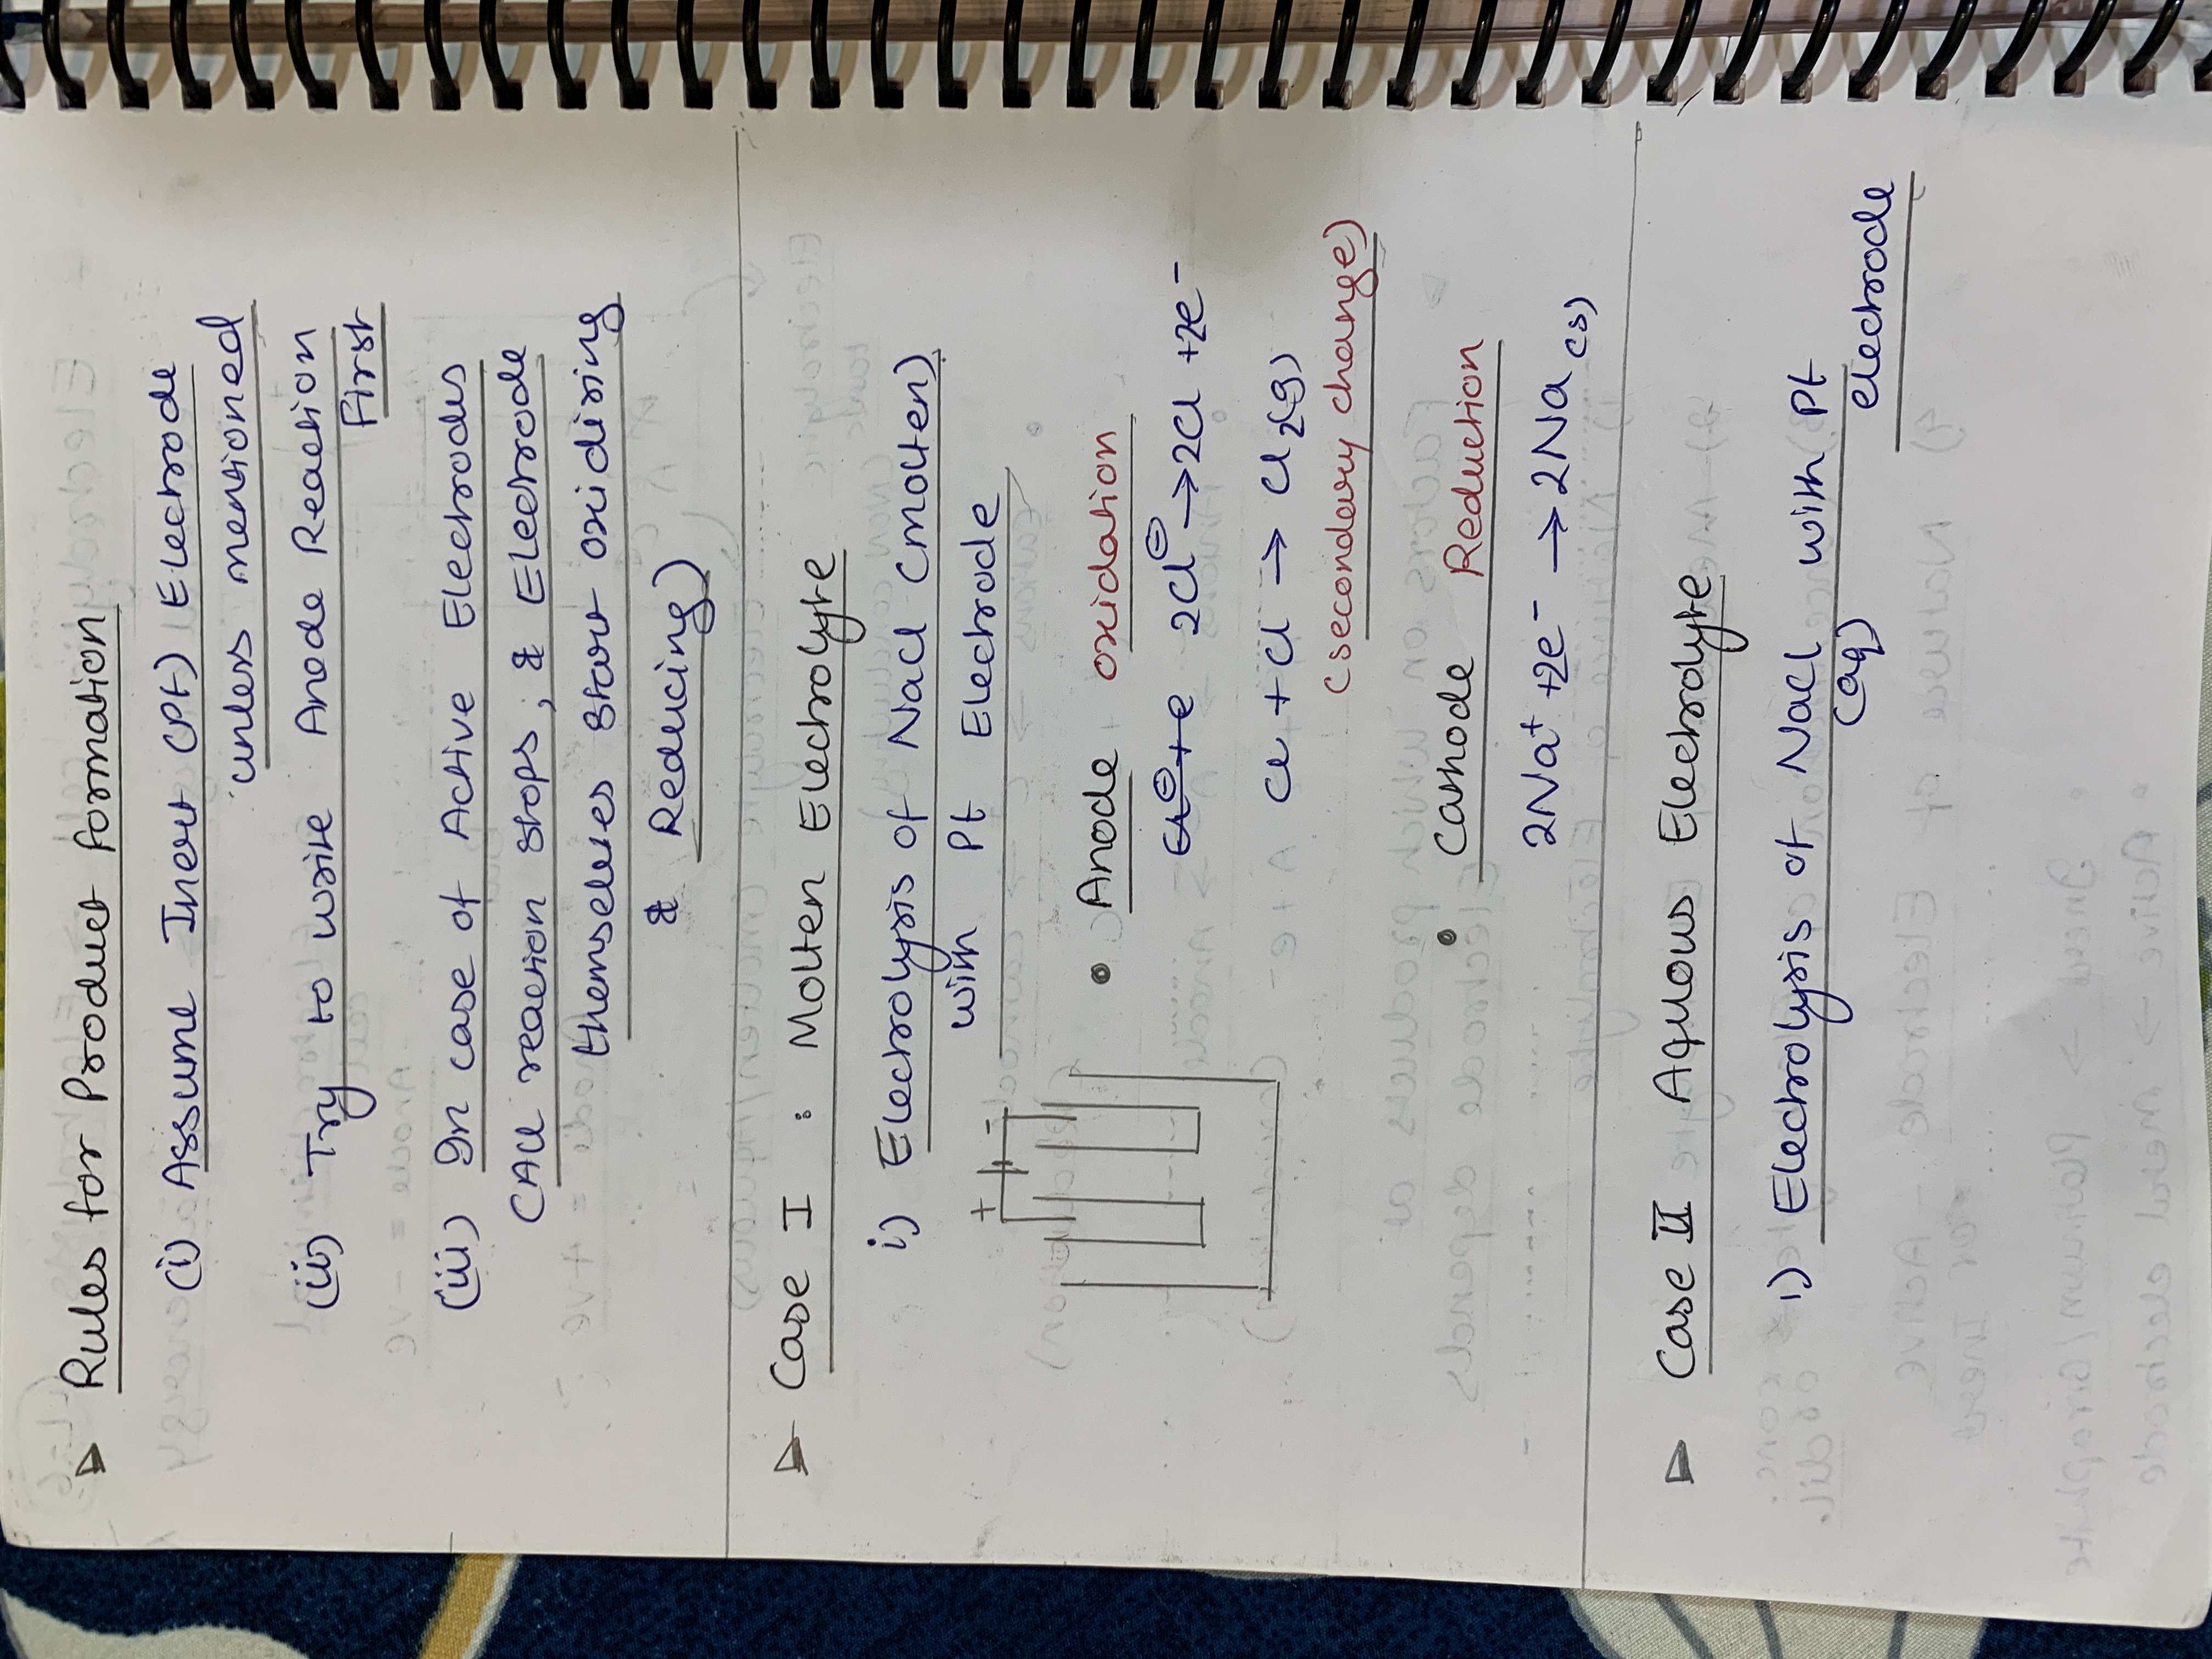 Rules for Product formation
(i) Assume Inert (Pt) Electrode
unless mentioned
(ii) Try to write Anode Reaction
First
(iii) In case of Active Electrodes
(All reaction stops, & Electrode
themselves start oxidizing
& Reducing)
Case I : Molten Electrolyte
i) Electrolysis of NaCl (molten)
with Pt Electrode
+ -
• Anode oxidation
2Cl⊖ → 2Cl + 2e⁻
Cl + Cl → Cl₂(g)
(secondary change)
• Cathode Reduction
2Na⁺ + 2e⁻ → 2Na (s)
Case II Aquous Electrolyte
i) Electrolysis of NaCl with Pt
(aq) electrode